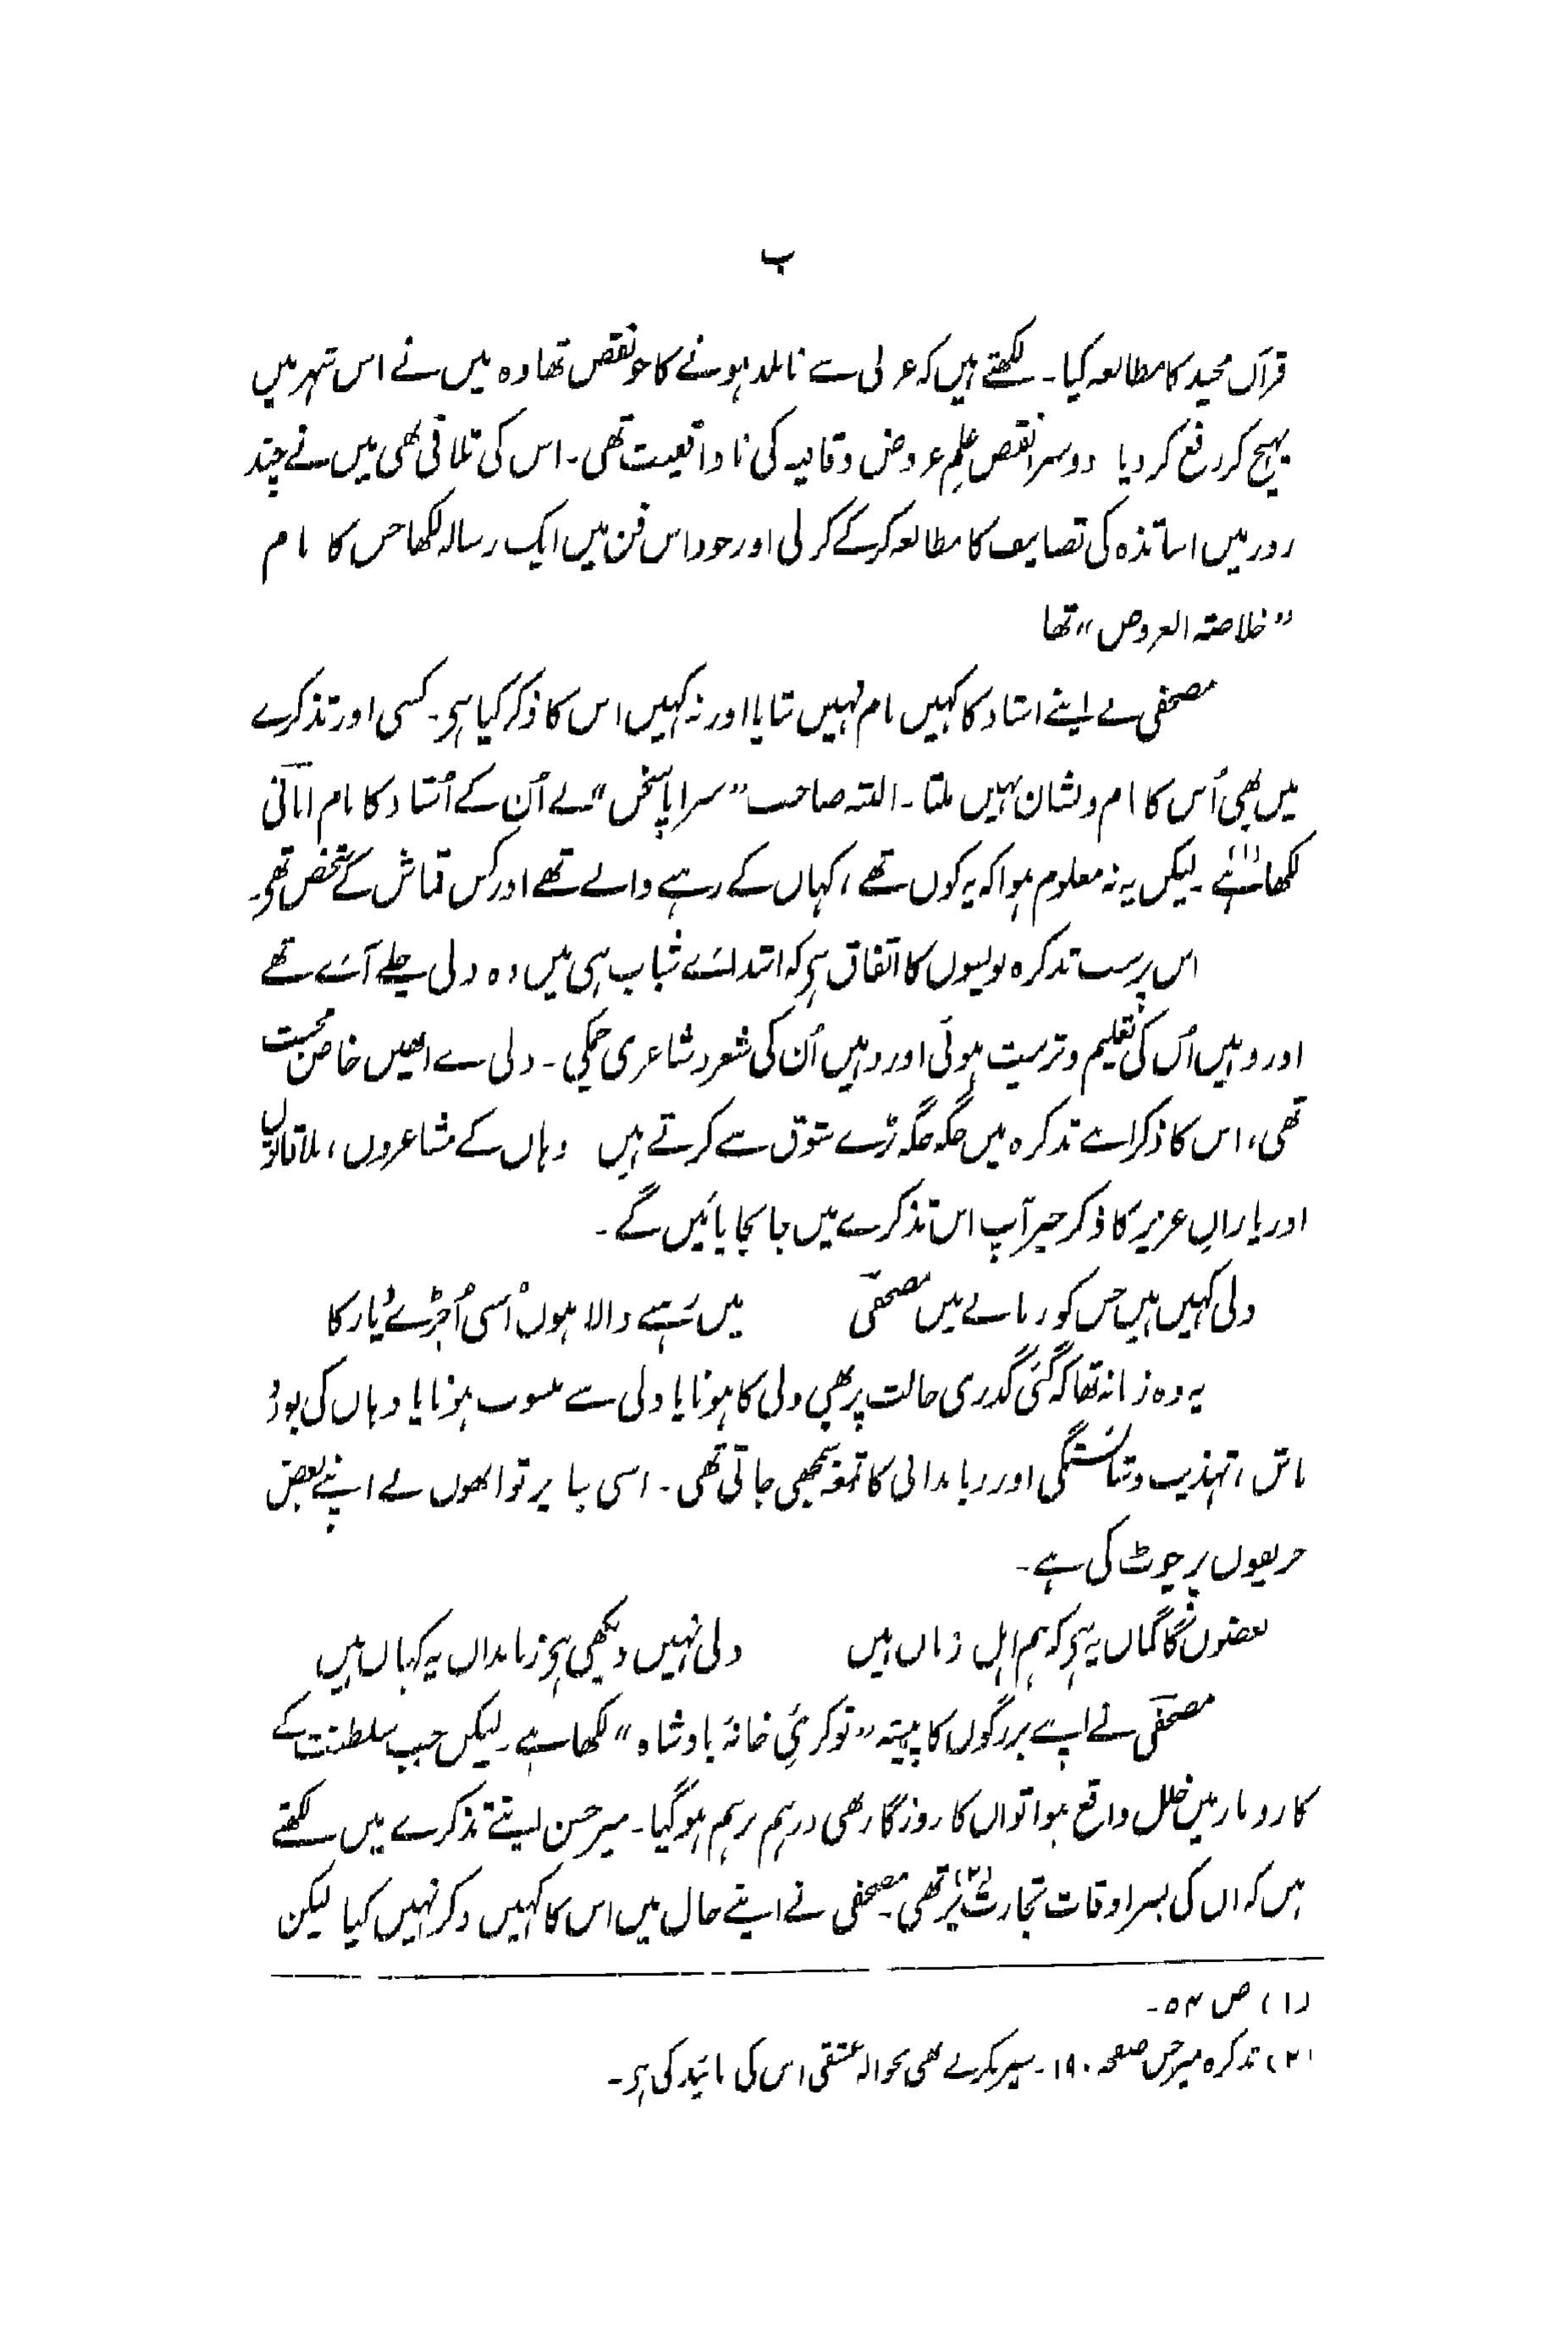 ب
قرآن مجید کا مطالعہ کیا۔ لکھتے ہیں کہ عربی سے نابلد ہونے کا جو نقص تھا وہ میں نے اس شہر میں
پہنچ کر رفع کر دیا دوسرا نقص علمِ عروض و قافیہ کی ناواقعیت تھی۔ اس کی تلافی بھی میں نے چند
روز میں اساتذہ کی تصانیف کا مطالعہ کرکے کر لی اور خود اس فن میں ایک رسالہ لکھا جس کا نام
”خلاصتہ العروض“ تھا
مصحفی نے اپنے استاد کا کہیں نام نہیں بتایا اور نہ کہیں اس کا ذکر کیا ہی۔ کسی اور تذکرے
میں بھی اُس کا نام و نشان نہیں ملتا۔ البتہ صاحب ”سراپا سخن“ نے اُن کے اُستاد کا نام امانی
لکھا ہے (۱)۔ لیکن یہ نہ معلوم ہوا کہ یہ کون تھے، کہاں کے رہنے والے تھے اور کس قماش کے شخص تھے۔
اس پر سب تذکرہ نویسوں کا اتفاق ہی کہ ابتدائے شباب ہی میں وہ دلی چلے آئے تھے
اور وہیں اُن کی تعلیم و تربیت ہوئی اور وہیں اُن کی شعر و شاعری چمکی۔ دلی سے انھیں خاص محبت
تھی، اس کا ذکر اپنے تذکرہ میں جگہ جگہ بڑے شوق سے کرتے ہیں وہاں کے مشاعروں، ملاقاتوں
اور یارانِ عزیز کا ذکر خیر آپ اس تذکرے میں جا بجا پائیں گے۔
دلی کہیں ہیں جس کو زمانے میں مصحفی میں رہنے والا ہوں اُسی اُجڑے دیار کا
یہ وہ زمانہ تھا کہ گئی گذری حالت پر بھی دلی کا ہونا یا دلی سے منسوب ہونا یا وہاں کی بود و
باش، تہذیب و شائستگی اور زباندانی کا تمغہ سمجھی جاتی تھی۔ اسی بنا پر تو انھوں نے اپنے بعض
حریفوں پر چوٹ کی ہے۔
بعضوں کا گماں یہ ہی کہ ہم اہل زباں ہیں دلی نہیں دیکھی ہی زباندان یہ کہاں ہیں
مصحفی نے اپنے بزرگوں کا پیشہ ”نوکریِ خانۂ بادشاہ“ لکھا ہے۔ لیکن جب سلطنت کے
کاروبار میں خلل واقع ہوا تو ان کا روزگار بھی درہم برہم ہوگیا۔ میر حسن اپنے تذکرے میں لکھتے
ہیں کہ ان کی بسر اوقات تجارت پر تھی (۲)۔ مصحفی نے اپنے حال میں اس کا کہیں ذکر نہیں کیا لیکن
(۱) ص ۵۴۔
(۲) تذکرہ میر حسن صفحہ ۱۹۰۔ سپرنگر نے بھی بحوالہ عشقی اس کی تائید کی ہی۔